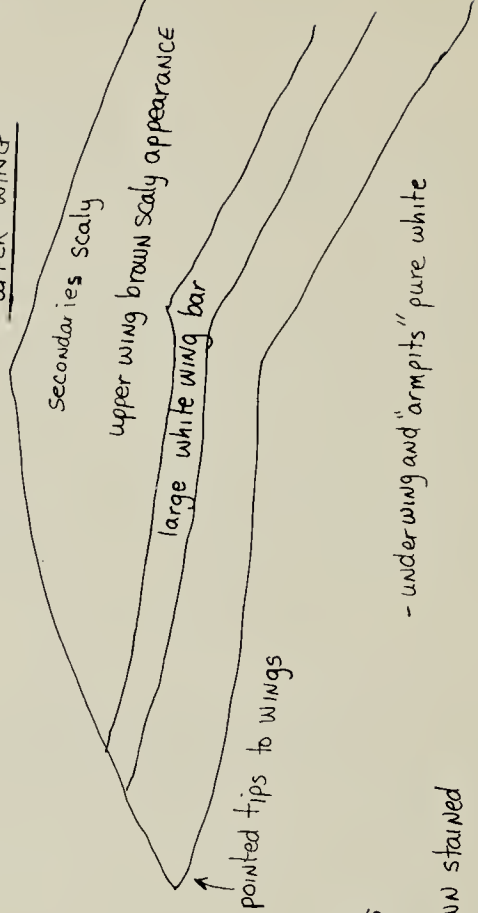 WING
secondaries scaly
upper wing brown scaly appearance
large white wing bar
pointed tips to wings
- underwing and "armpits" pure white
stained